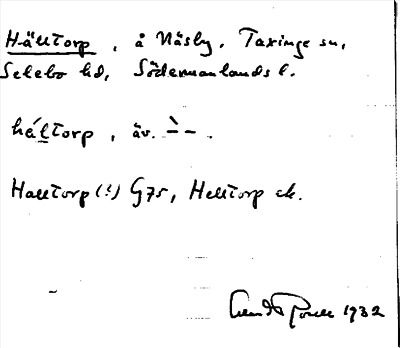 Hälltorp, å Näsby, Taxinge sn,
Selebo hd, Södermanlands l.
hé̜ltorp, äv. `– –.
Halltorp (!) G 75, Helltorp ek.
1932